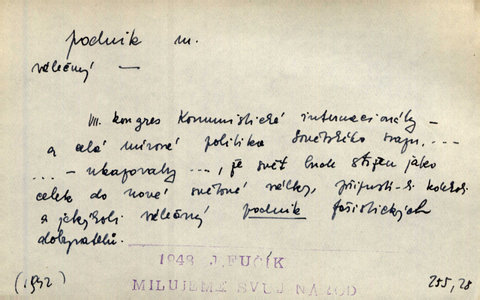 podnik m.
válečný —
VII. kongres Komunistické internacionály –
a celá mírová politika Sovětského svazu, ...
... – ukazovaly ..., že svět bude stržen jako
celek do nové světové války, připustí-li kdekoli
a jakýkoli válečný podnik fašistických
dobyvatelů.
1948 J.FUČÍK
MILUJEME SVŮJ NÁROD
(1932) 255, 28